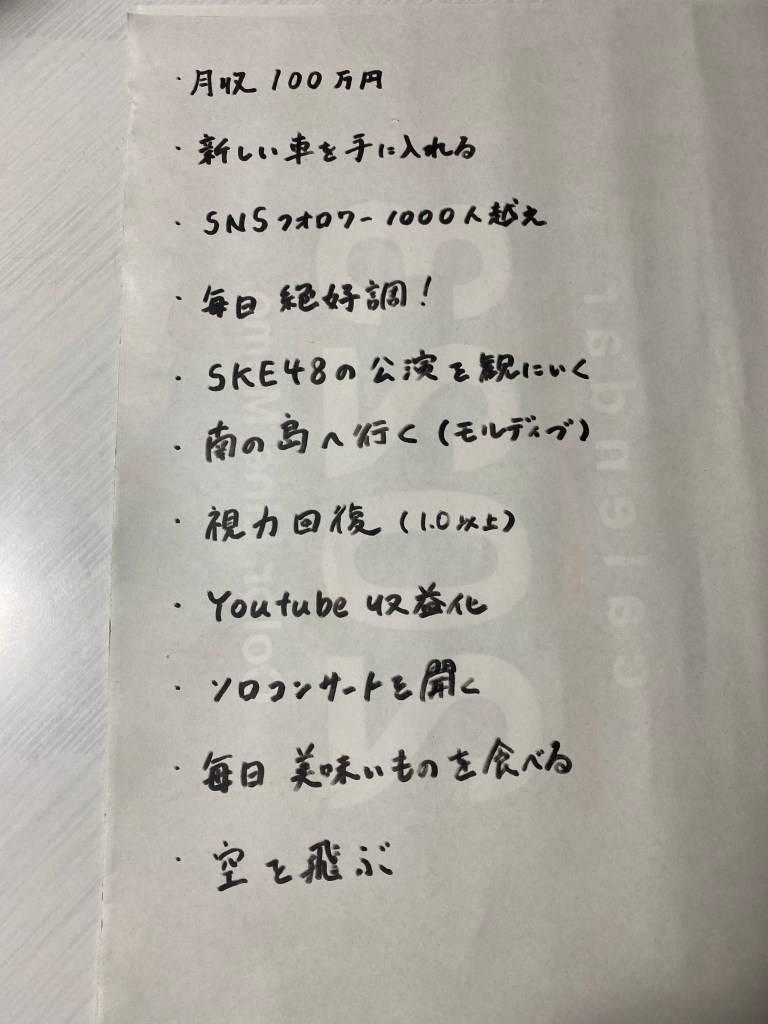 ・月収 100万円
・新しい車を手に入れる
・SNSフォロワー1000人越え
・毎日 絶好調！
・SKE48の公演を観にいく
・南の島へ行く（モルディブ）
・視力回復（1.0以上）
・Youtube 収益化
・ソロコンサートを開く
・毎日 美味いものを食べる
・空を飛ぶ